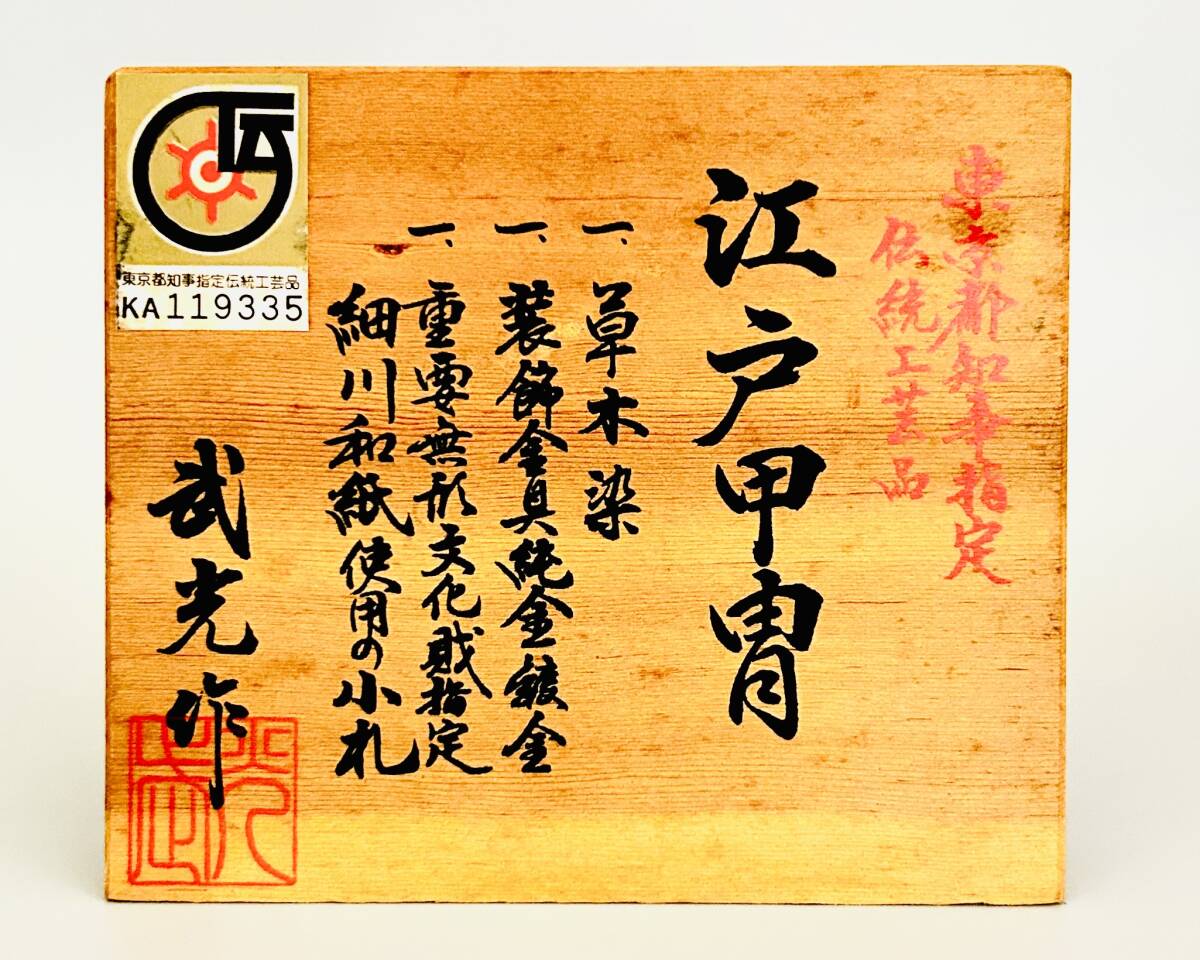 東京都知事指定
伝統工芸品
江戸甲冑
一、草木染
一、装飾金具純金鍍金
一、重要無形文化財指定
細川和紙使用の小札
武光作
伝
東京都知事指定伝統工芸品
KA119335
武光